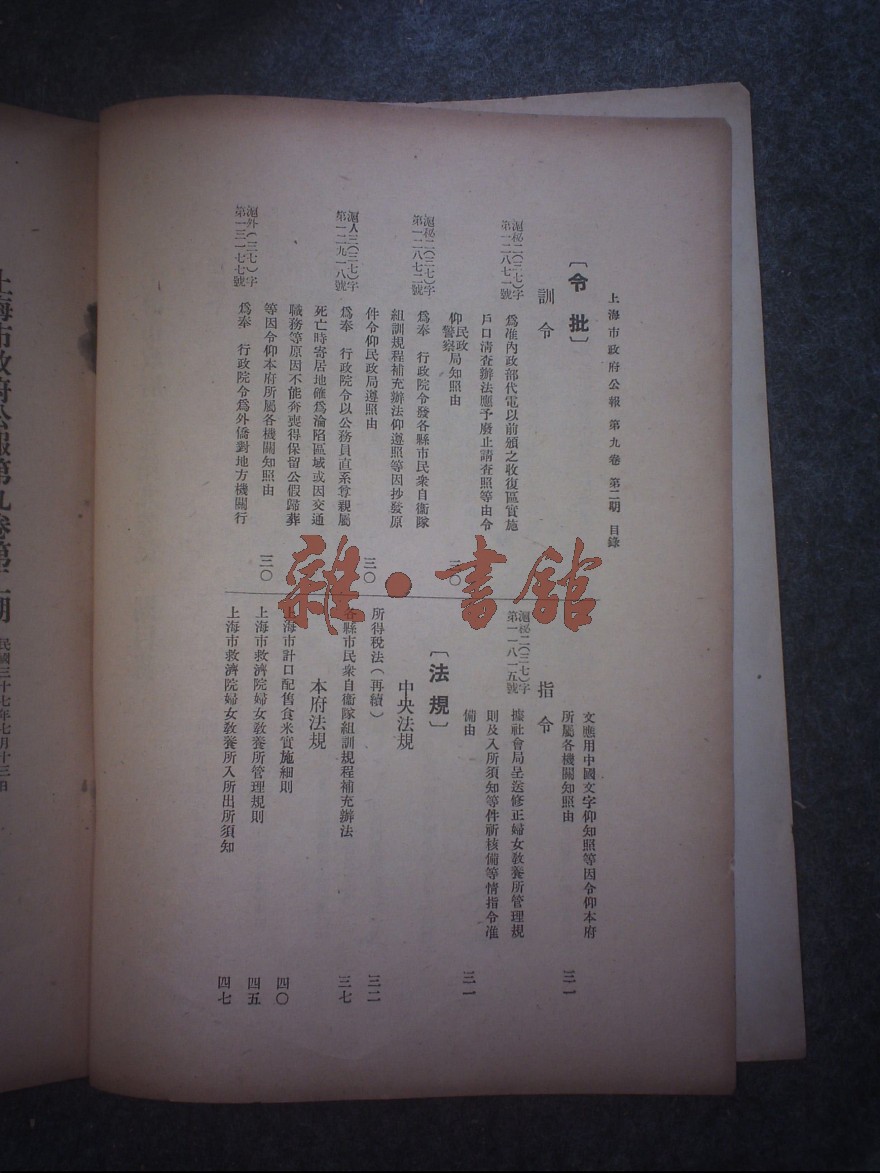 上海市政府公報 第九卷 第二期 目錄
〔令批〕
訓令
滬秘二(三七)字
第一二八七一號
為准內政部代電以前頒之收復區實施
戶口清查辦法應予廢止請查照等由令
仰民政局知照由
警察
三〇
滬秘二(三七)字
第一二八七二號
為奉 行政院令發各縣市民衆自衞隊
組訓規程補充辦法仰遵照等因抄發原
件令仰民政局遵照由
三〇
滬人三(三七)字
第一二九一八號
為奉 行政院令以公務員直系尊親屬
死亡時寄居地確為淪陷區域或因交通
職務等原因不能奔喪得保留公假歸葬
等因令仰本府所屬各機關知照由
三〇
滬外(三七)字
第一三一七七號
為奉 行政院令為外僑對地方機關行
文應用中國文字仰知照等因令仰本府
所屬各機關知照由
三一
指令
滬秘二(三七)字
第一一八一五號
據社會局呈送修正婦女敎養所管理規
則及入所須知等件祈核備等情指令准
備由
三一
〔法規〕
中央法規
所得稅法(再續)
三二
各縣市民衆自衞隊組訓規程補充辦法
三七
本府法規
上海市計口配售食米實施細則
四〇
上海市救濟院婦女敎養所管理規則
四五
上海市救濟院婦女敎養所入所出所須知
四七
上海市政府公報第九卷第二期
民國三十七年七月十三日
雜·書館